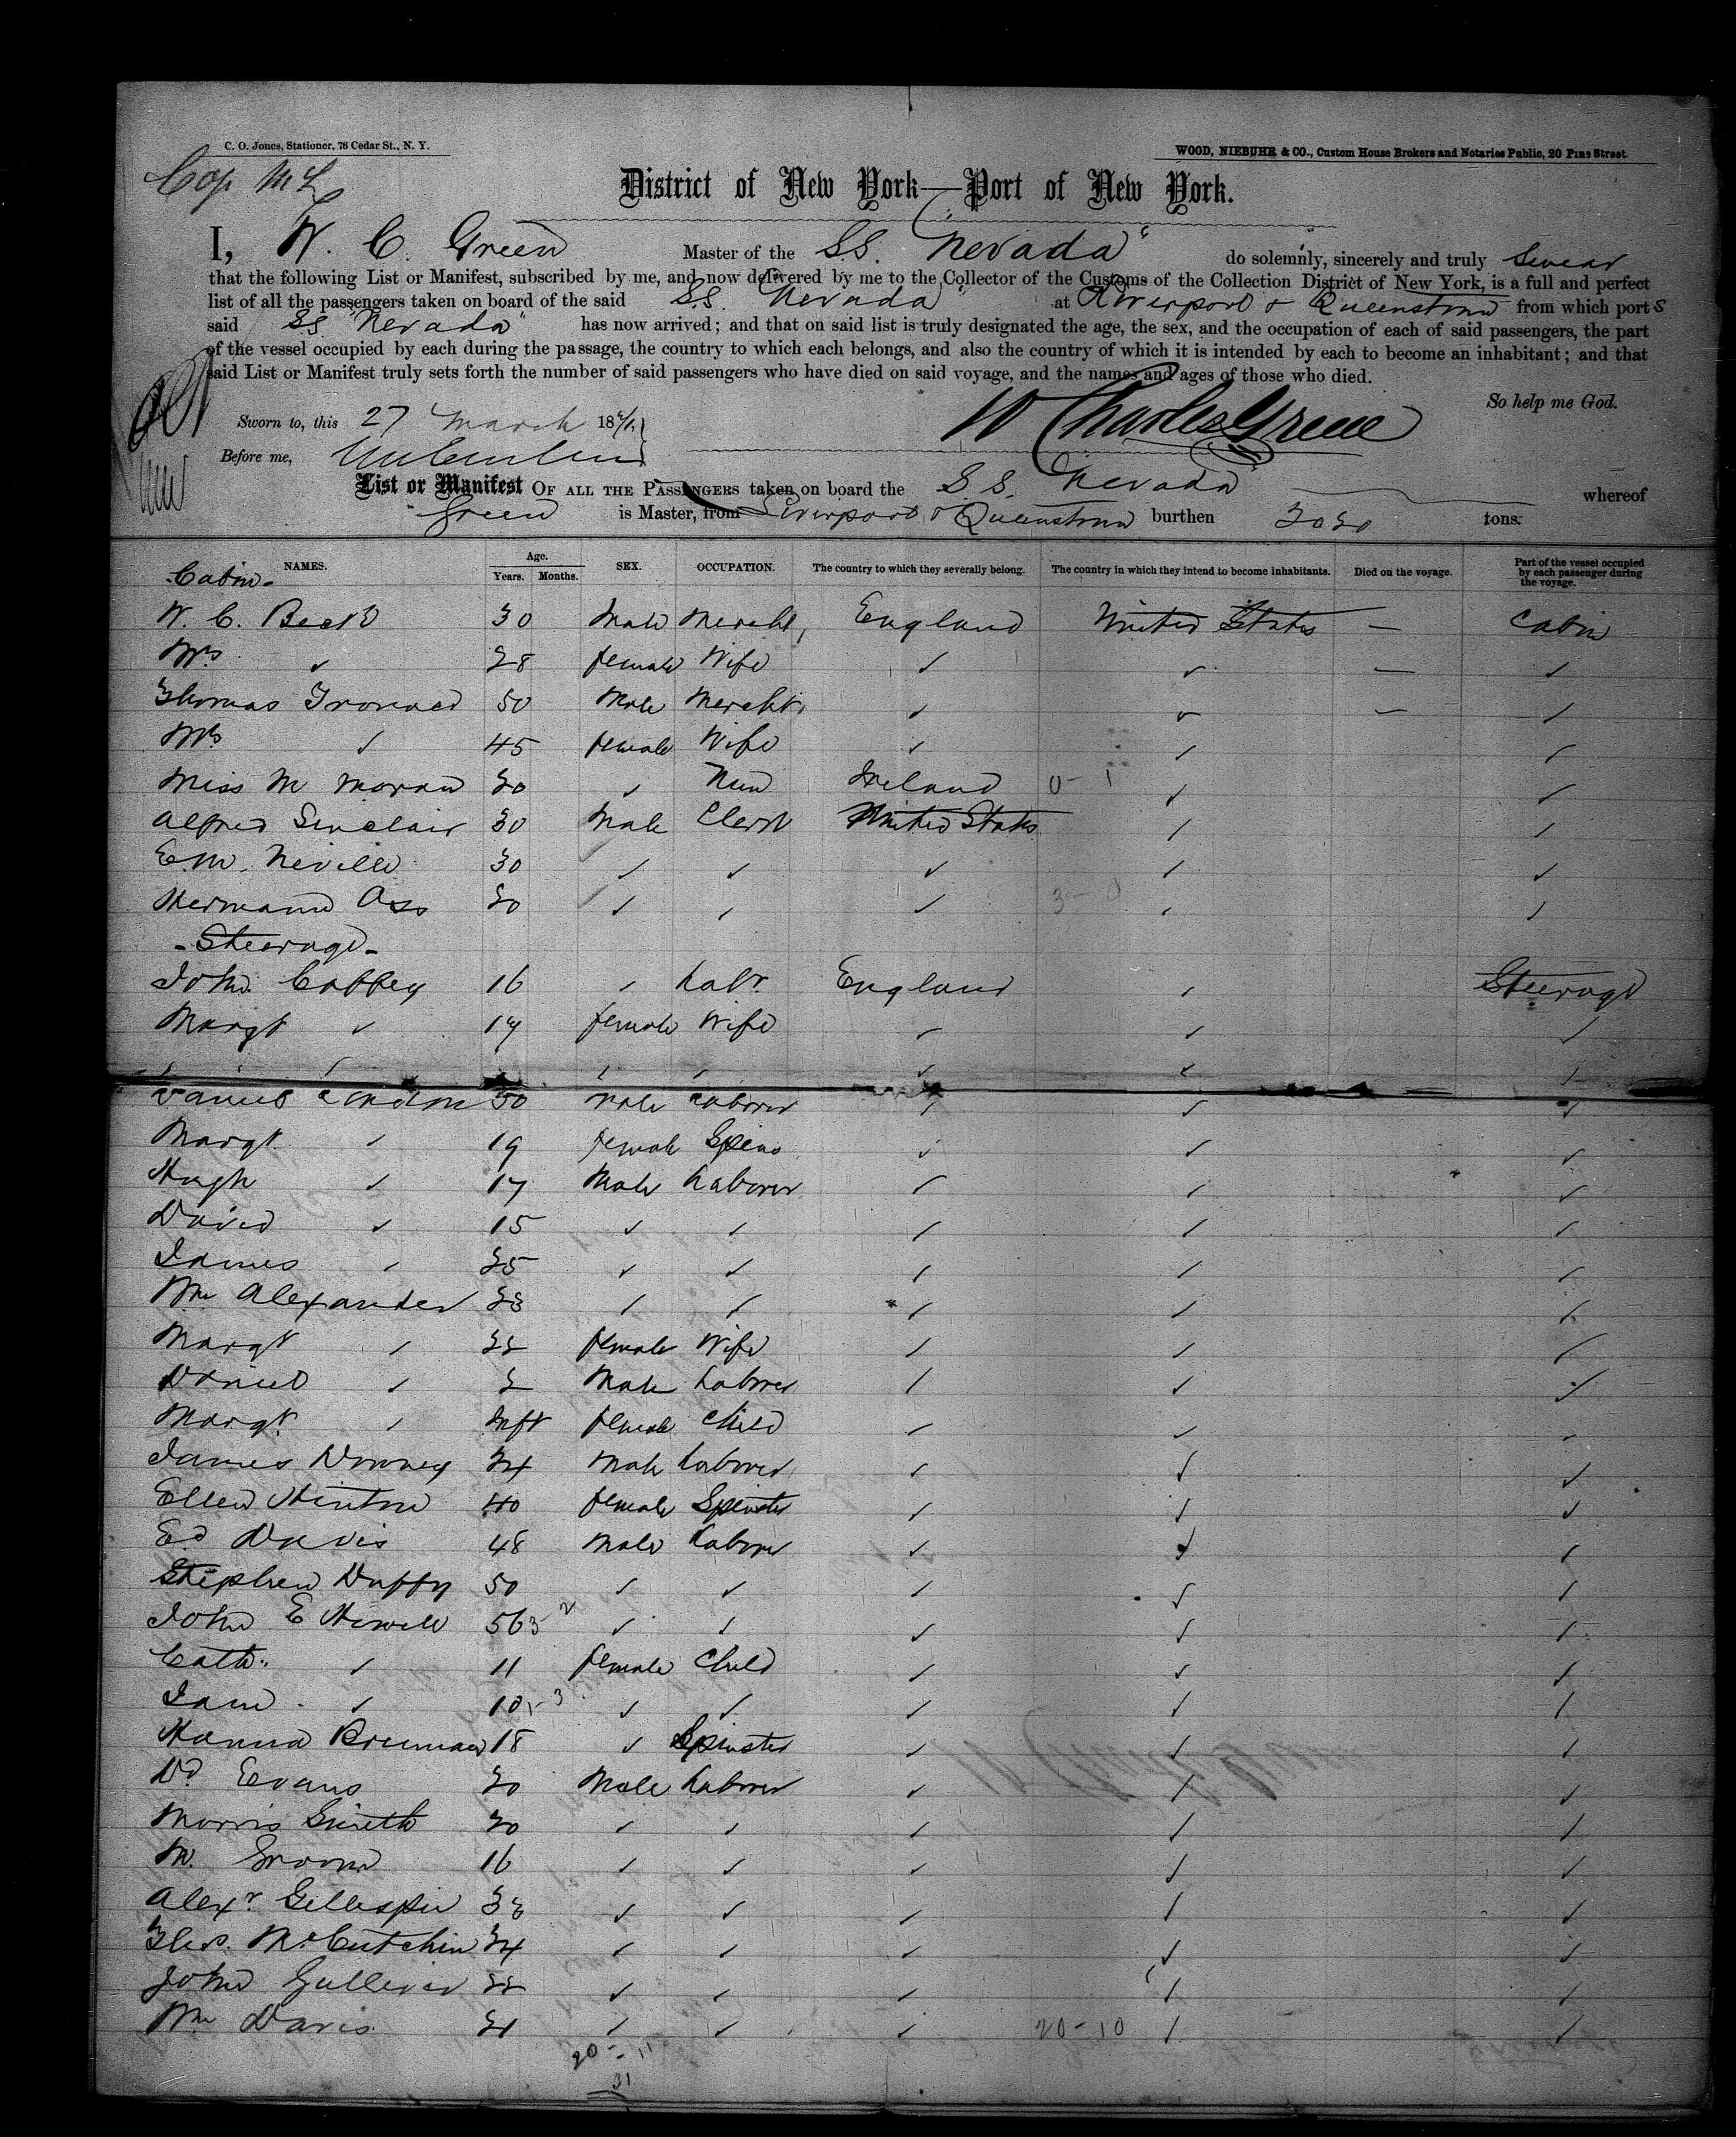 C. O. Jones, Stationer, 76 Cedar St., N. Y.
WOOD, NIEBUHR & CO., Custom House Brokers and Notaries Public, 20 Pine Street.
Cop
District of New York—Port of New York.
I, W. C. Green Master of the S.S. "Nevada" do solemnly, sincerely and truly swear
that the following List or Manifest, subscribed by me, and now delivered by me to the Collector of the Customs of the Collection District of New York, is a full and perfect
list of all the passengers taken on board of the said S.S. Nevada at Liverpool & Queenstown from which ports
said SS "Nevada" has now arrived; and that on said list is truly designated the age, the sex, and the occupation of each of said passengers, the part
of the vessel occupied by each during the passage, the country to which each belongs, and also the country of which it is intended by each to become an inhabitant; and that
said List or Manifest truly sets forth the number of said passengers who have died on said voyage, and the names and ages of those who died.
So help me God.
W Charles Green
Sworn to, this 27 March 187
Before me,
List or Manifest OF ALL THE PASSENGERS taken on board the S.S. Nevada whereof
Green is Master, from Liverpool & Queenstown burthen tons.
NAMES. Age. Years. Months. SEX. OCCUPATION. The country to which they severally belong. The country in which they intend to become inhabitants. Died on the voyage. Part of the vessel occupied by each passenger during the voyage.
Cabin
W. C. 30 Male Mercht, England United States — Cabin
Mrs ✓ 28 female Wife ✓ ✓ — ✓
Thomas 50 Male Mercht ✓ ✓ — ✓
Mrs ✓ 45 female Wife ✓ ✓ ✓
Miss M Moran ✓ Nun Ireland 0- 1 ✓ ✓
Alfred Sinclair 30 Male Clerk United States ✓ ✓
E. M. Neville 30 ✓ ✓ ✓ ✓ ✓
Hermann ✓ ✓ ✓ ✓ ✓
-Steerage-
John 16 ✓ Labr. England ✓ Steerage
Margt ✓ 17 female Wife ✓ ✓ ✓
✓ ✓ ✓ ✓ ✓ ✓ ✓
50 Male Laborer ✓ ✓ ✓
Margt ✓ 19 female Spins ✓ ✓ ✓
Hugh ✓ 17 Male Laborer ✓ ✓ ✓
David ✓ 15 ✓ ✓ ✓ ✓ ✓
James ✓ ✓ ✓ ✓ ✓ ✓
Wm Alexander ✓ ✓ ✓ ✓ ✓
Margt ✓ female Wife ✓ ✓ ✓
Daniel ✓ Male Laborer ✓ ✓ ✓
Margt ✓ Inft female Child ✓ ✓ ✓
James Downey Male Laborer ✓ ✓ ✓
Ellen Hinton 40 female Spinster ✓ ✓ ✓
Ed Davis 48 Male Laborer ✓ ✓ ✓
Stephen Duffy 50 ✓ ✓ ✓ ✓ ✓
John E Howell 56 ✓ ✓ ✓ ✓ ✓
Cath. ✓ 11 female Child ✓ ✓ ✓
Jane ✓ 10 ✓ ✓ ✓ ✓ ✓
Hanna Brennan 18 ✓ Spinster ✓ ✓ ✓
Dd Evans Male Laborer ✓ ✓ ✓
Morris ✓ ✓ ✓ ✓ ✓
16 ✓ ✓ ✓ ✓ ✓
Alexr Gillespie ✓ ✓ ✓ ✓ ✓
Thos. McCutchin ✓ ✓ ✓ ✓ ✓
John ✓ ✓ ✓ ✓ ✓
Wm Davis 21 ✓ ✓ ✓ 20-10 ✓ ✓
20-11
31